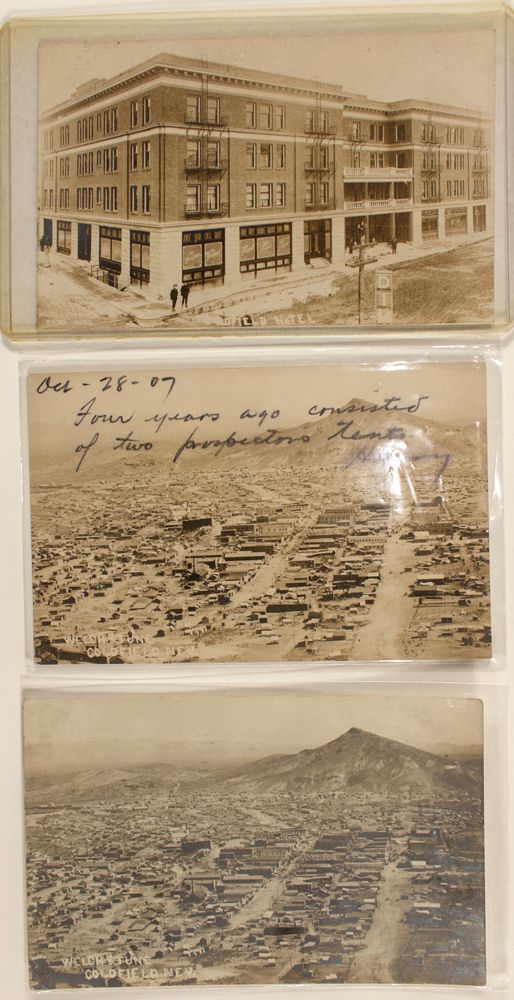 HOTEL
Oct - 28 - 07
Four years ago consisted
of two prospectors Tent
WELCH & TUNE
GOLDFIELD, NEV.
WELCH & TUNE
GOLDFIELD, NEV.